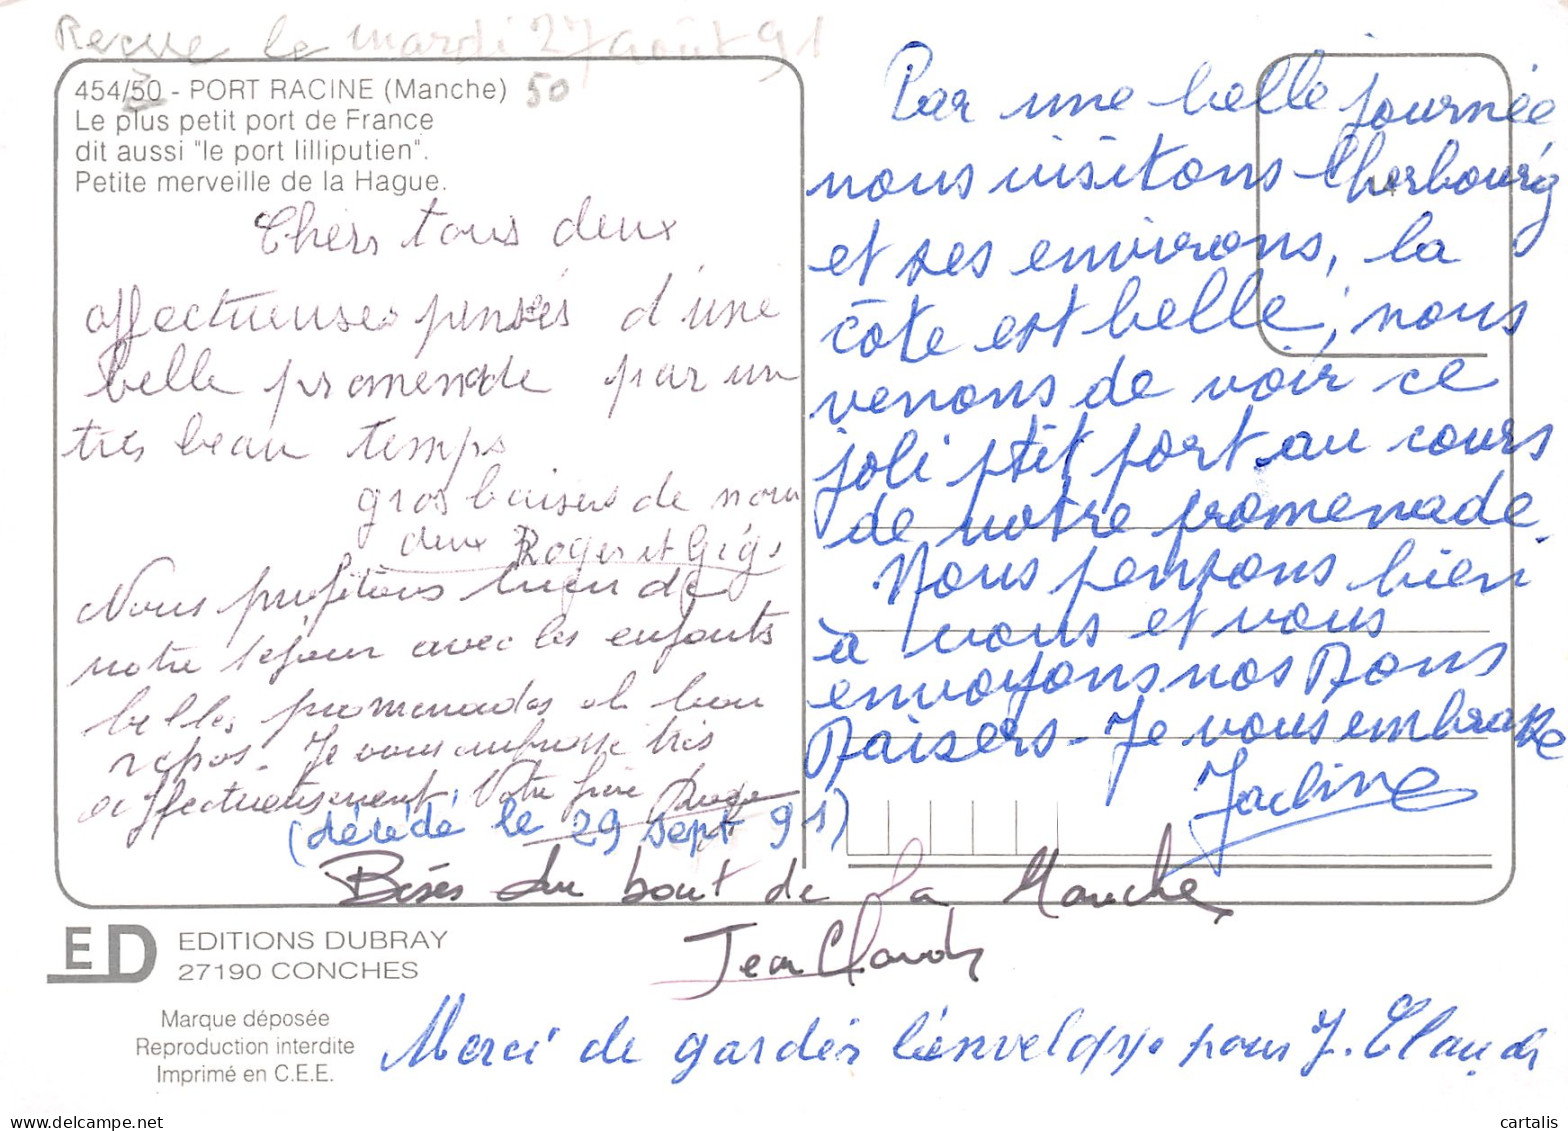 Reçue le mardi 27 août 91
454/50 - PORT RACINE (Manche) 50
Le plus petit port de France
dit aussi "le port lilliputien".
Petite merveille de la Hague.
Chers tous deux
affectueuses pensées d'une
belle promenade par un
très beau temps
gros baisers de nous
deux Roger et Gégé
Nous profitons bien de
notre séjour avec les enfants
belles promenades et bon
repos - Je vous embrasse très
affectueusement, Votre frère Roger
(décédé le 29 sept 91)
Par une belle journée
nous visitons Cherbourg
et ses environs, la
côte est belle, nous
venons de voir ce
joli ptit port au cours
de notre promenade.
Nous pensons bien
à vous et vous
envoyons nos bons
Baisers - Je vous embrasse
Jacline
Bises du bout de la Manche
Jean Claude
ED EDITIONS DUBRAY
27190 CONCHES
Marque déposée
Reproduction interdite
Imprimé en C.E.E.
Merci de gardér l'énveloppe pour J. Claude
cartalis